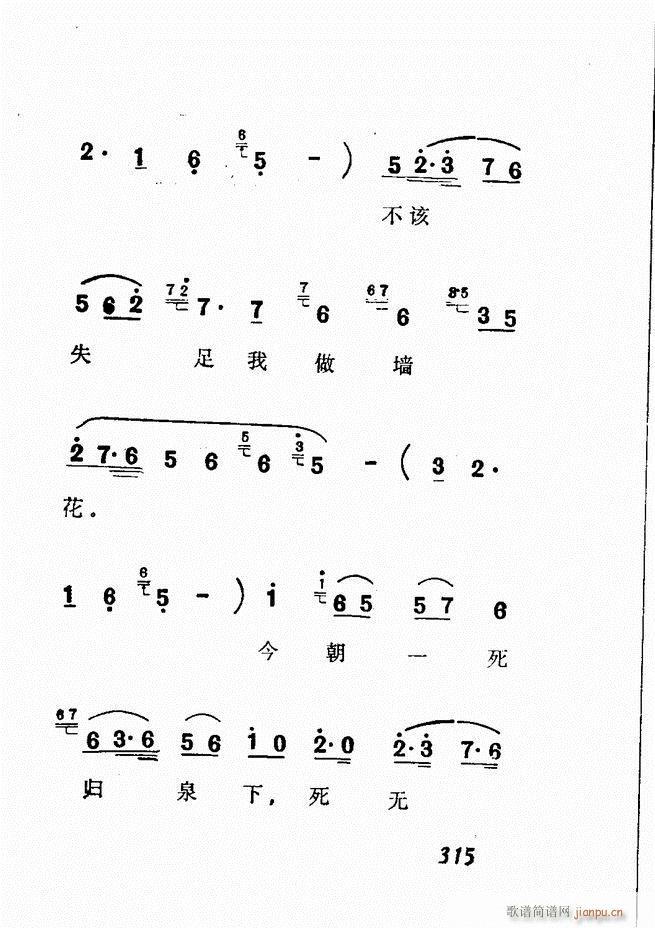 2· 1 6 6 5 - ) 5 2·3 7 6
不该
5 6 2 7 2 7· 7 7 6 6 7 6 3·5 3 5
失 足我做墙
2 7·6 5 6 5 6 3 5 - ( 3 2·
花.
1 6 6 5 - ) i i 6 5 5 7 6
今朝一死
6 7 6 3·6 5 6 i 0 2·0 2·3 7·6
归泉下,死无
315
歌谱简谱网 jianpu.cn